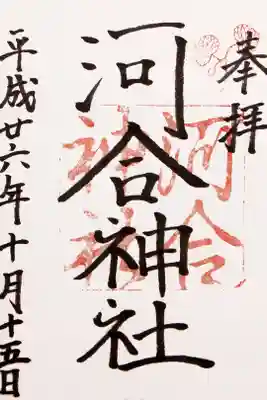 奉拝
河合神社
平成廿六年十月十五日
河合
神社